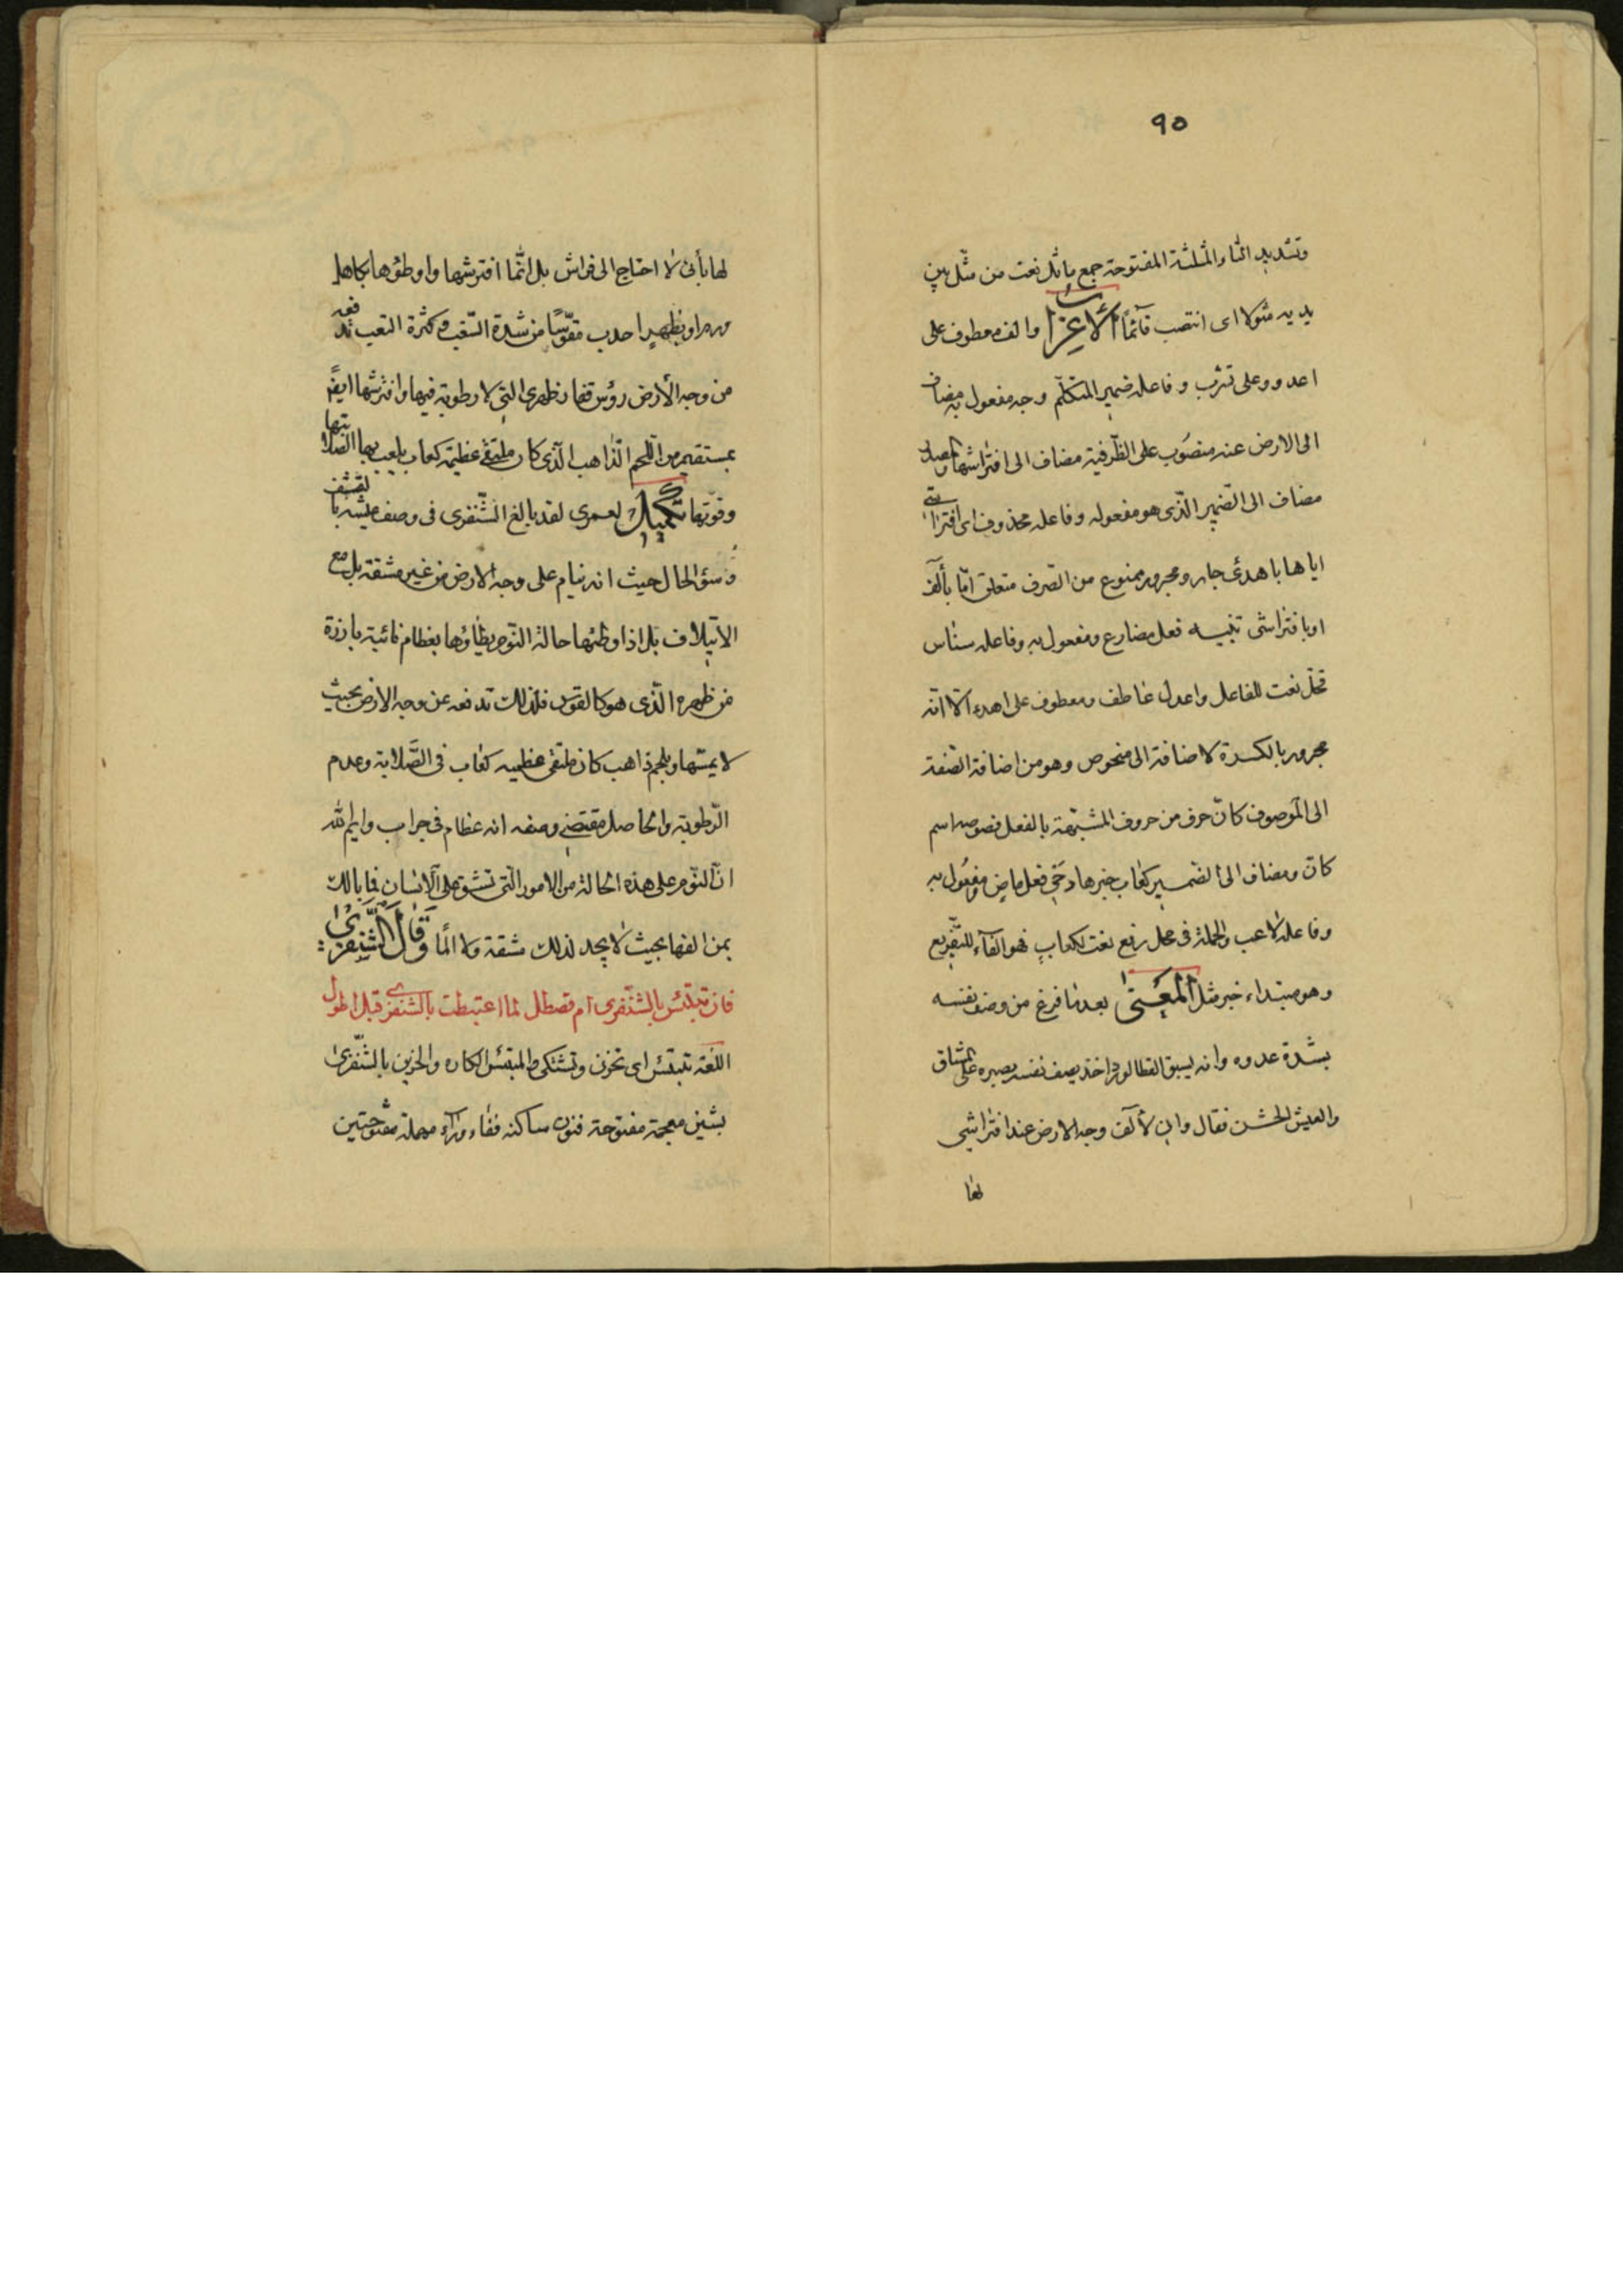 ٩٥
وتشديد الثاء المثلثة المفتوحة جمع ماثل نعت من مثل بين
يديه مثولا اى انتصب قآئمًا الأعراب والف معطوف على
اعدو وعلى تشرب وفاعله ضمير المتكلّم وجه مفعول به مضاف
الى الارض عند منصوب على الظّرفية مضاف الى افتراشها
مضاف الى الضّمير الّذى هو مفعوله وفاعله محذوف اى افتراشى
اياها باهدئ جار ومجرور ممنوع من الصّرف متعلق امّا بألف
او بافتراشى تنبيه فعل مضارع ومفعول به وفاعله سناسن
قحل نعت للفاعل واعدل عاطف ومعطوف على اهدء الّا انّه
مجرور بالكسرة لاضافته الى منحوض وهو من اضافة الصّفة
الى الموصوف كانّ حرف من حروف المشبّهة بالفعل فصوصه اسم
كانّ ومضاف الى الضمير كعاب خبرها دحى فعل ماض ومفعول به
وفاعله لاعب والجملة فى محل رفع نعت لكعاب فهو الفآء للتّفريع
وهو مبتداء خبر مثل المعنى بعدما فرغ من وصف نفسه
بشدة عدوه وانه يسبق القطا لورد اخذ يصف نفسه بصبره على المشاق
والعيش الخشن فقال وانى لآلف وجه الارض عند افتراشى
لها
لها بأنى لا احتاج الى فراش بل انّما افترشها واوطؤها بكاهل
او بظهر احدب مقوّسًا من شدة السّغب وكثرة التعب تدفعه
من وجه الأرض رؤس فقار ظهرى التى لا رطوبة فيها وافترشها ايضًا
من اللّحم الذّاهب الّذى كان ملتقى عظيمه كعاب يلعب بها لصلابتها
وقوّتها تكميل لعمرى لقد بالغ الشّنفرى فى وصف عيشه بالتقشف
وسؤ الحال حيث انه ينام على وجه الارض من غير مشقة بل مع
الائتلاف بل اذا وطئها حالة النّوم يطاؤها بعظام نائية بارزة
من ظهره الّذى هو كالقوس فلذلك تدفعه عن وجه الارض بحيث
لا يمسّها وبلحم ذاهب كان ملتقى عظميه كعاب فى الصّلابة وعدم
الرّطوبة والحاصل مقتضى وصفه انه عظام فى جراب وايم الله
انّ النّوم على هذه الحالة من الامور الّتى تشق على الانسان فما بالك
بمن الفها بحيث لا يجد لذلك مشقة ولا المًا وَقَالَ الشَّنفَرىٰ
فان تبتئس بالشنفرى ام قسطل لما اغتبطت بالشنفرى قبل اطول
اللّغة تبتئس اى تحزن وتشتكى والمبتئس الكاره والحزين بالشّنفرى
بشين معجمة مفتوحة فنون ساكنه ففاء ورآء مهملة مفتوحتين